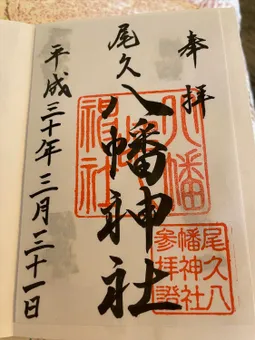 奉拝
尾久八幡神社
平成三十年三月三十一日
八幡
神社
尾久八
幡神社
参拝證